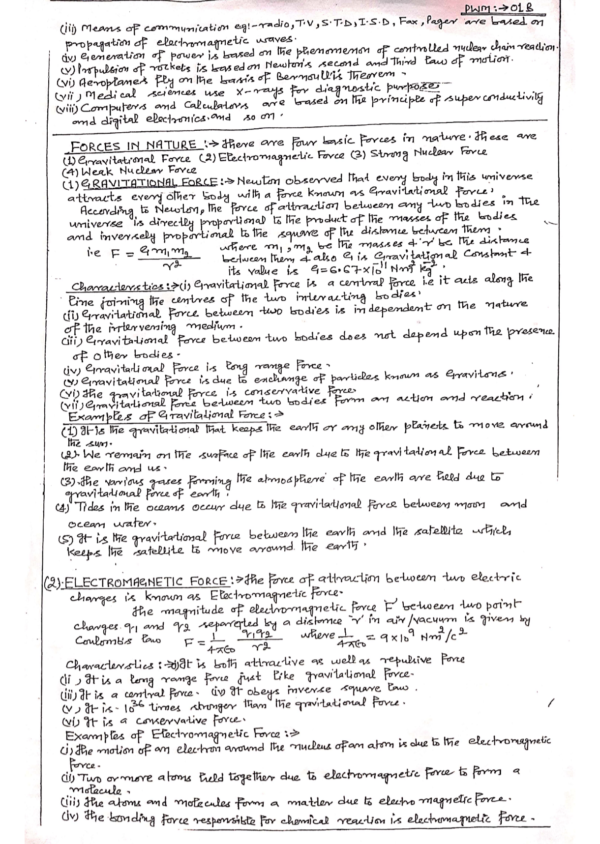 PWM:→01B
(iii) Means of communication eg:-radio, T.V, S.T.D, I.S.D, Fax, Pager are based on
propagation of electromagnetic waves.
(iv) Generation of power is based on the phenomenon of controlled nuclear chain reaction.
(v) Propulsion of rockets is based on Newton's second and third law of motion.
(vi) Aeroplanes fly on the basis of Bernoulli's Theorem.
(vii) Medical sciences use X-rays for diagnostic purpose
(viii) Computers and Calculators are based on the principle of superconductivity
and digital electronics. and so on.
FORCES IN NATURE :→ There are four basic forces in nature. These are
(1) Gravitational Force (2) Electromagnetic Force (3) Strong Nuclear Force
(4) Weak Nuclear Force
(1) GRAVITATIONAL FORCE :→ Newton observed that every body in this universe
attracts every other body with a force known as Gravitational force.
According to Newton, the force of attraction between any two bodies in the
universe is directly proportional to the product of the masses of the bodies
and inversely proportional to the square of the distance between them.
i.e F = Gm₁m₂/r² where m₁, m₂ be the masses & 'r' be the distance
between them & also G is Gravitational Constant &
its value is G = 6.67×10⁻¹¹ Nm² kg⁻²
Characterstics:→ (i) Gravitational Force is a central force i.e it acts along the
line joining the centres of the two interacting bodies.
(ii) Gravitational Force between two bodies is independent on the nature
of the intervening medium.
(iii) Gravitational force between two bodies does not depend upon the presence
of other bodies.
(iv) Gravitational Force is long range force.
(v) Gravitational force is due to exchange of particles known as Gravitons.
(vi) The gravitational force is conservative force.
(vii) Gravitational force between two bodies form an action and reaction.
Examples of Gravitational Force:→
(1) It is the gravitational that keeps the earth or any other planets to move around
the sun.
(2). We remain on the surface of the earth due to the gravitational force between
the earth and us.
(3). The various gases forming the atmosphere of the earth are held due to
gravitational force of earth.
(4) Tides in the oceans occur due to the gravitational force between moon and
ocean water.
(5) It is the gravitational force between the earth and the satellite which
keeps the satellite to move around the earth.
(2). ELECTROMAGNETIC FORCE :→ The force of attraction between two electric
charges is known as Electromagnetic force.
The magnitude of electromagnetic force F between two point
charges q₁ and q₂ separeted by a distance 'r' in air/vacuum is given by
Coulomb's law F = 1/4πε₀ q₁q₂/r² where 1/4πε₀ = 9×10⁹ Nm²/c²
Characterstics :→ (i) It is both attractive as well as repulsive force
(ii) It is a long range force just like gravitational force.
(iii) It is a central force. (iv) It obeys inverse square law.
(v) It is 10³⁶ times stronger than the gravitational force.
(vi) It is a conservative force.
Examples of Electromagnetic Force :→
(i) The motion of an electron around the nucleus of an atom is due to the electromagnetic
force.
(ii) Two or more atoms held together due to electromagnetic force to form a
molecule.
(iii) The atoms and molecules form a matter due to electro magnetic force.
(iv) The bonding force responsible for chemical reaction is electromagnetic force.